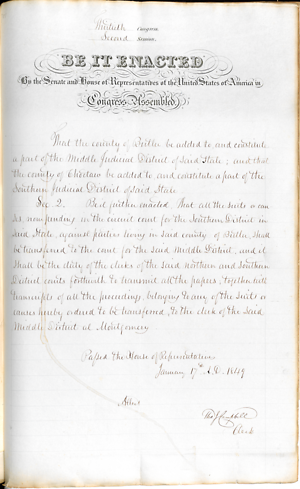 Thirtieth Congress
Second Session
BE IT ENACTED
By the Senate and House of Representatives of the United States of America in
Congress Assembled,
That the county of be added to, and constitute
a part of the Middle Judicial District of said State; and that
the county of Choctaw be added to and constitute a part of the
Southern Judicial District of said State
Sec 2. Be it further enacted That all the suits or cau-
ses, now pending in the circuit court for the Southern District in
said State, against parties living in said county of shall
be transferred to the court for the said Middle District, and it
shall be the duty of the clerks of the said northern and Southern
District courts forthwith to transmit all the papers, together with
transcripts of all the proceedings, belonging to any of the suits or
causes hereby ordered to be transferred, to the clerk of the said
Middle District at Montgomery
Passed the House of Representatives
January 17th A.D. 1849
Attest
Clerk